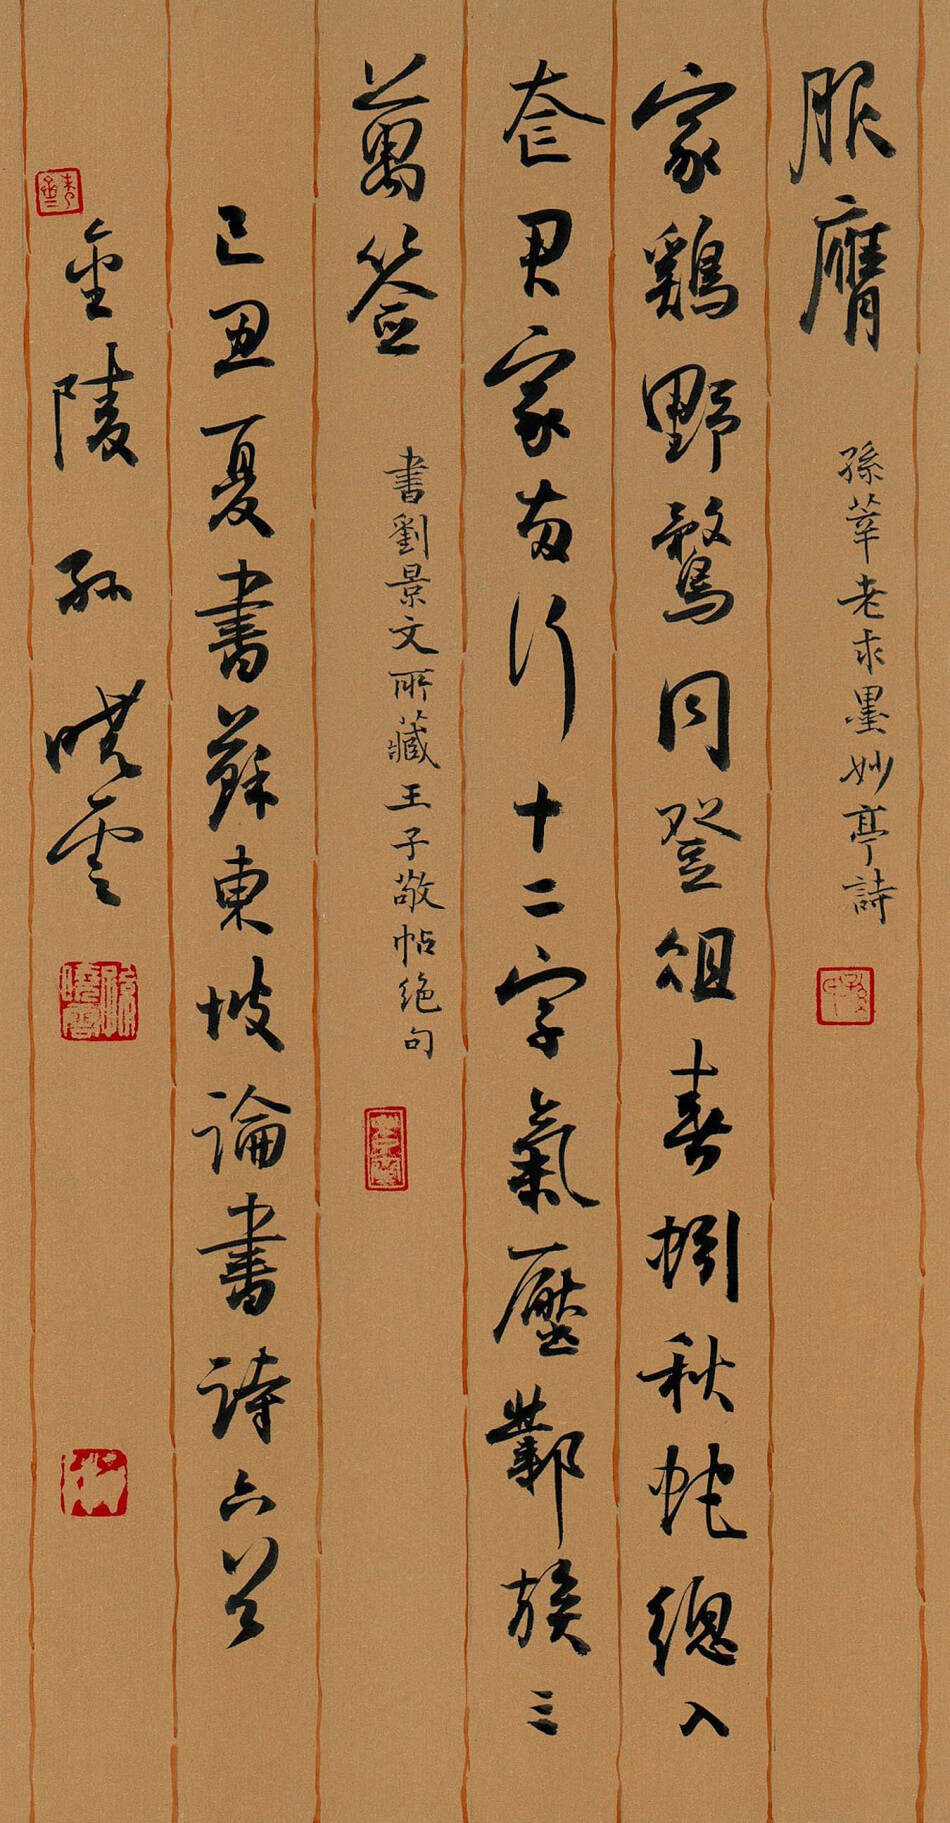 服膺
孫莘老求墨妙亭詩
家鷄野鶩同登俎春蚓秋蛇總入
奩君家兩行十二字氣壓鄴侯三
萬簽
書劉景文所藏王子敬帖絕句
己丑夏書蘇東坡論書詩六首
金陵孫曉雲
孫曉雲